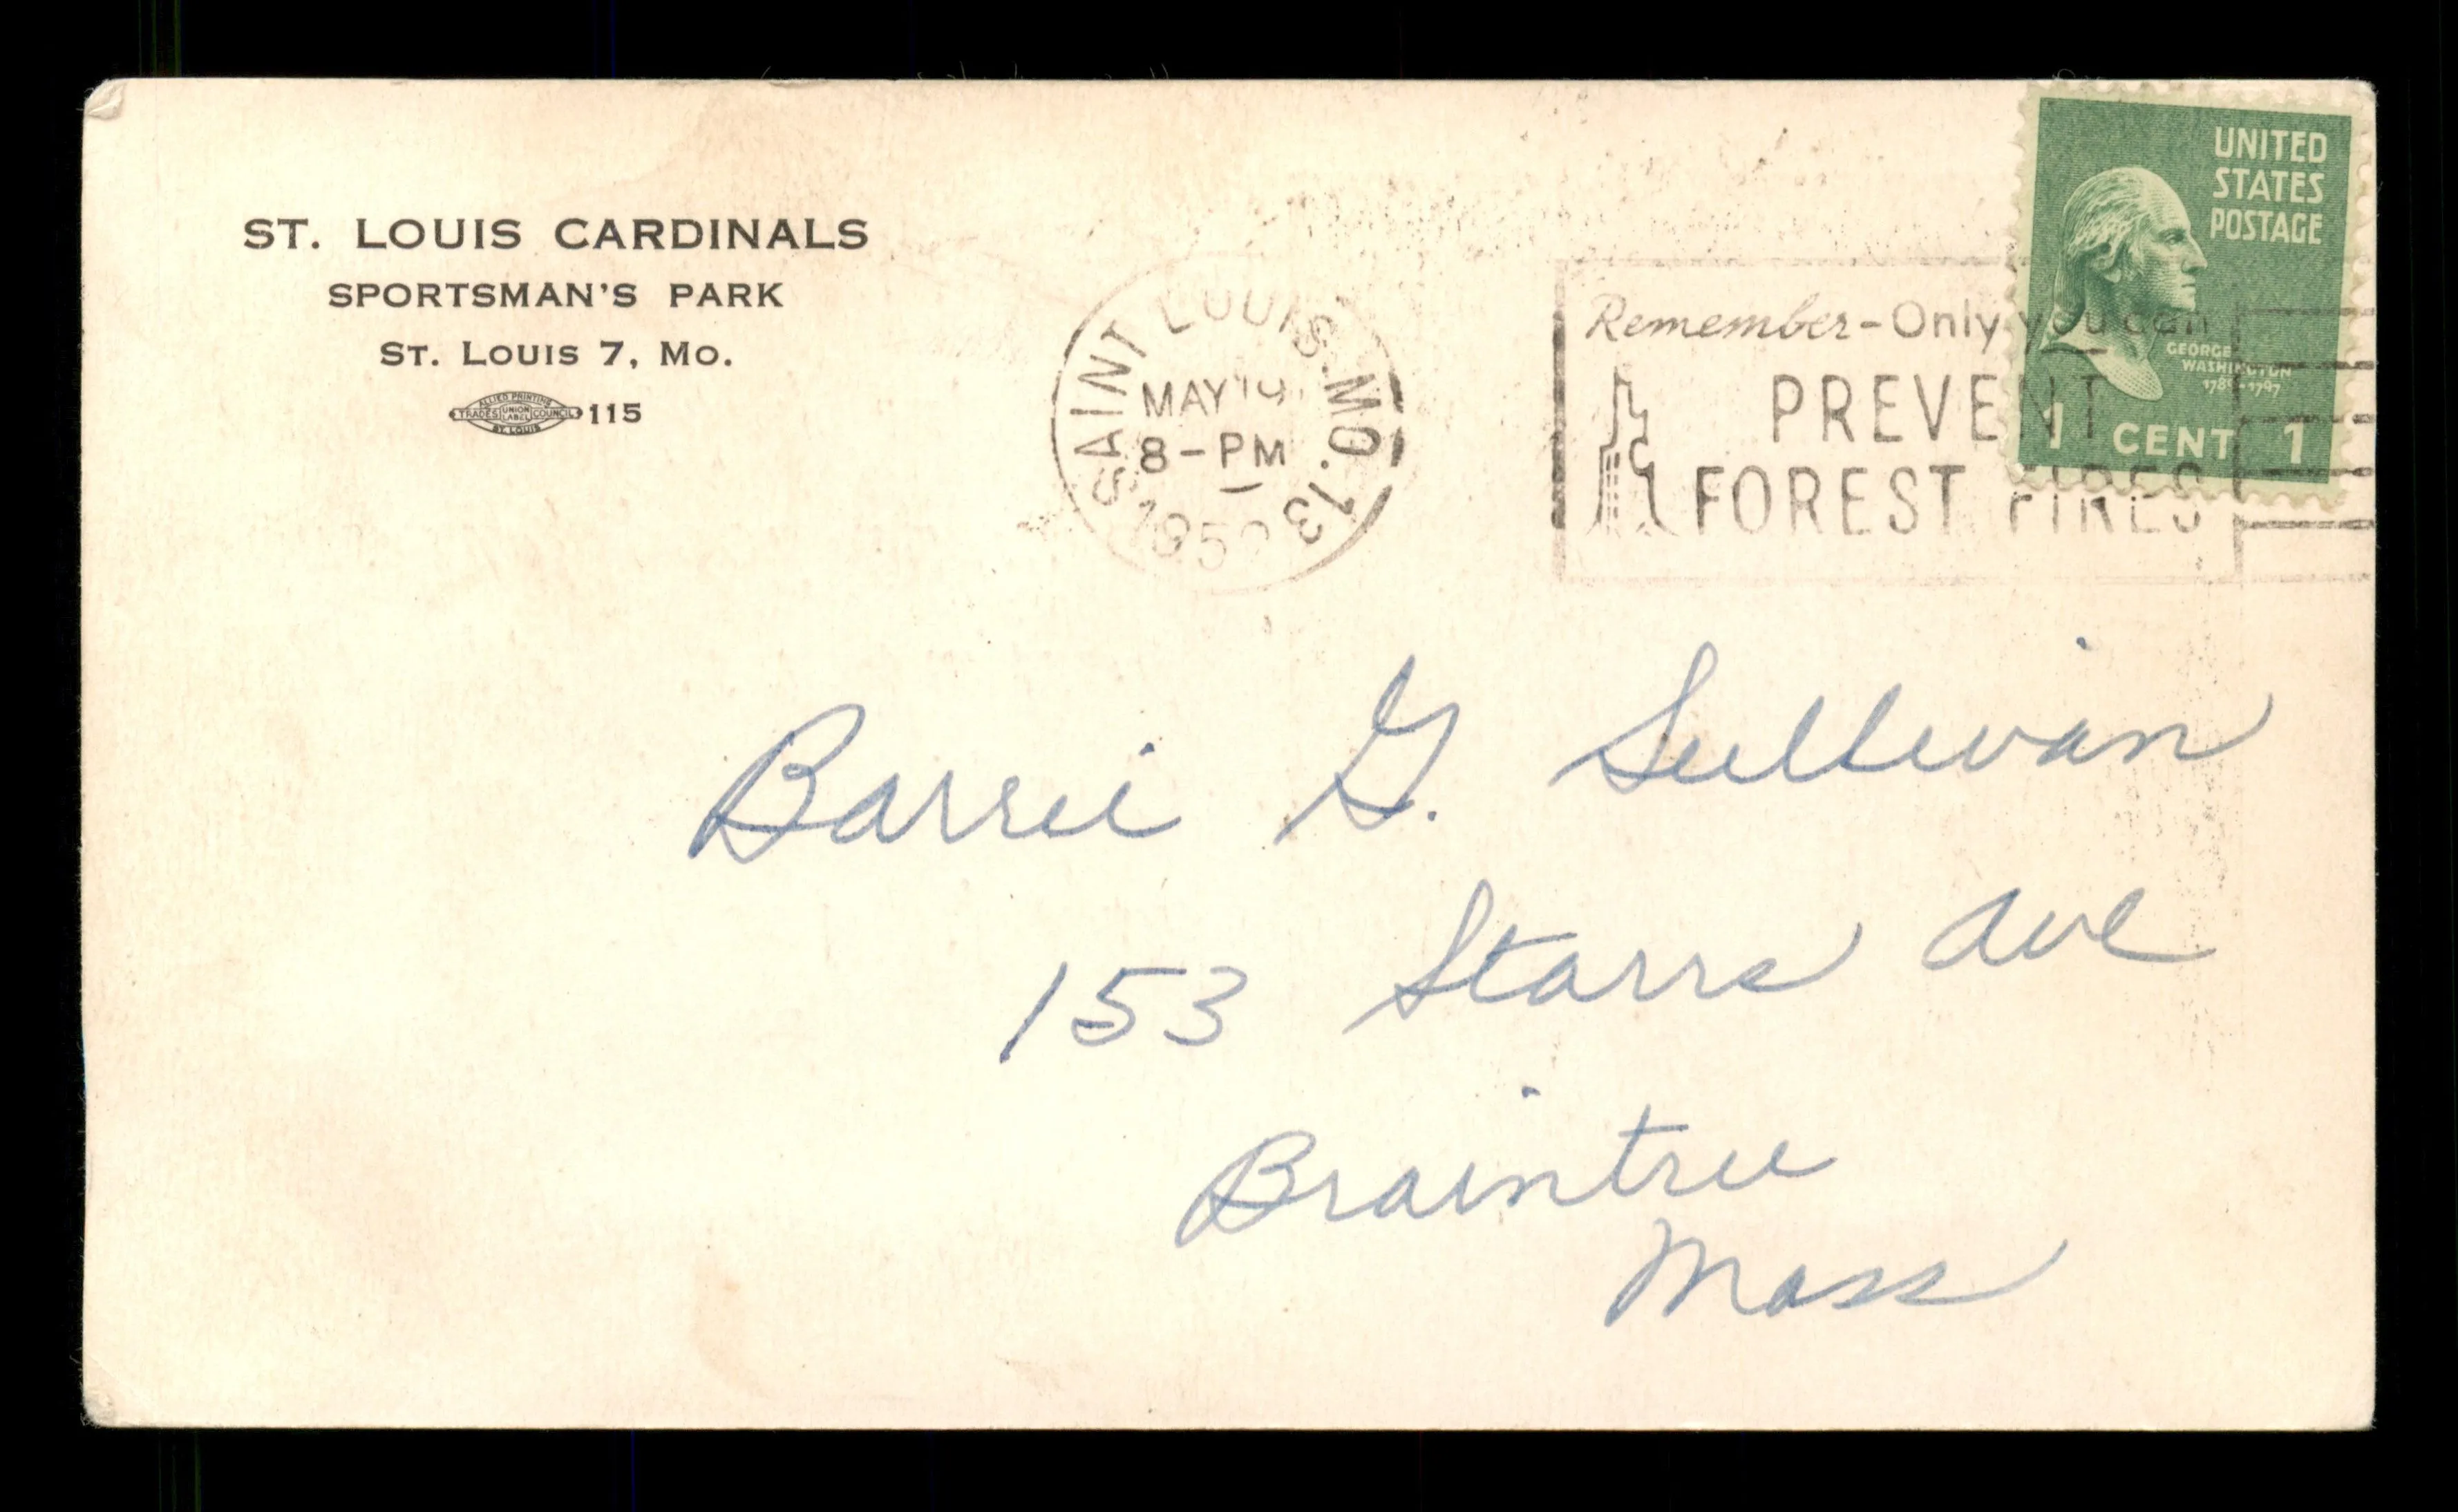 ST. LOUIS CARDINALS
SPORTSMAN'S PARK
ST. LOUIS 7, MO.
ALLIED PRINTING
TRADES UNION LABEL COUNCIL
ST. LOUIS
115
SAINT LOUIS. MO. 13
MAY
8-PM
195
Remember-Only you can
PREVENT
FOREST FIRES
UNITED
STATES
POSTAGE
GEORGE
WASHINGTON
1789-1797
1 CENT 1
Barrie G. Sullivan
153 Starrs Ave
Braintree
Mass